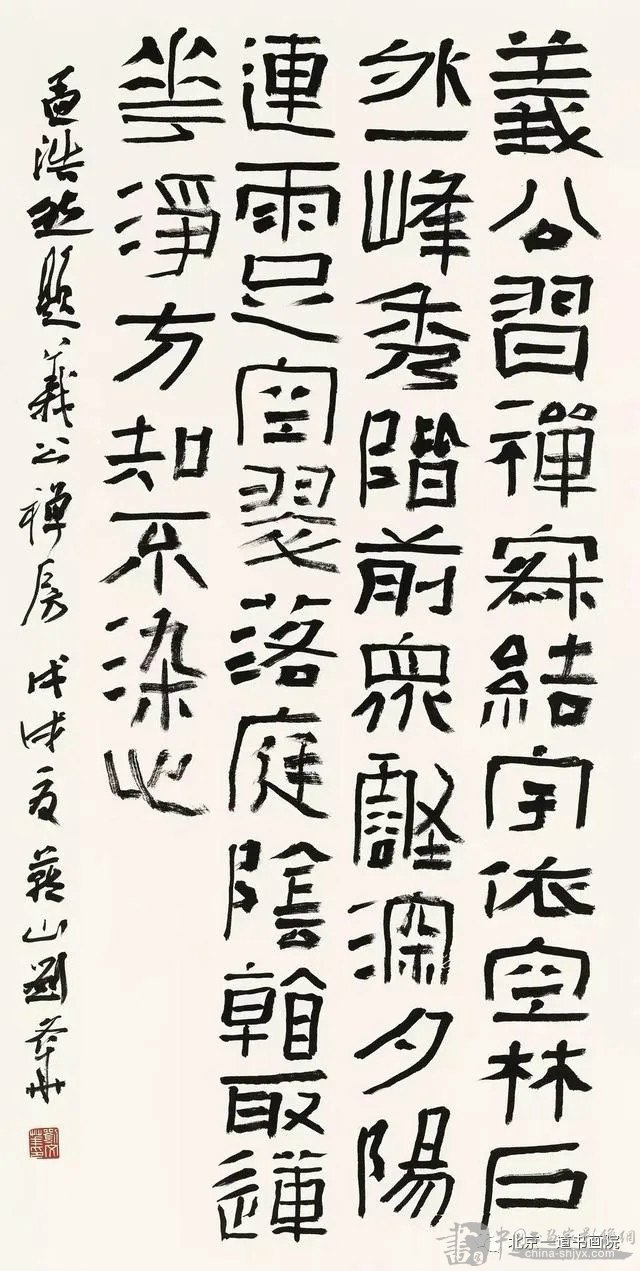 義公習禪寂結宇依空林戶
外一峰秀階前眾壑深夕陽
連雨足空翠落庭陰看取蓮
花淨方知不染心
孟浩然題義公禪房 戊戌夏 山劉華
北京一道书画院
china-shjyx.com